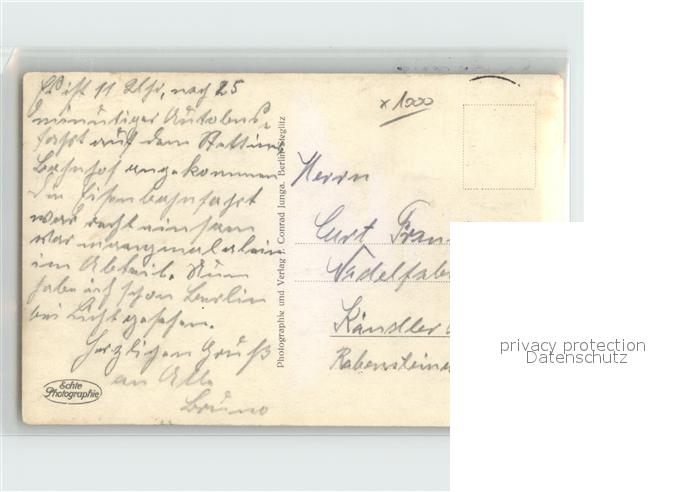 Es ist 11 Uhr, nach 25
minütiger Autobus-
fahrt auf dem Stettiner
Bahnhof angekommen
Die Eisenbahnfahrt
war recht einsam
war mangmal allein
im Abteil. Nun
habe ich schon Berlin
bei Licht gesehen.
Herzlichen Gruß
an Alle
Bruno
Echte
Photographie
Photographie und Verlag J. Conrad Junga, Berlin-Steglitz
x 1000
Herrn
Curt
Nadelfab
Kändler
Rabensteiner
privacy protection
Datenschutz